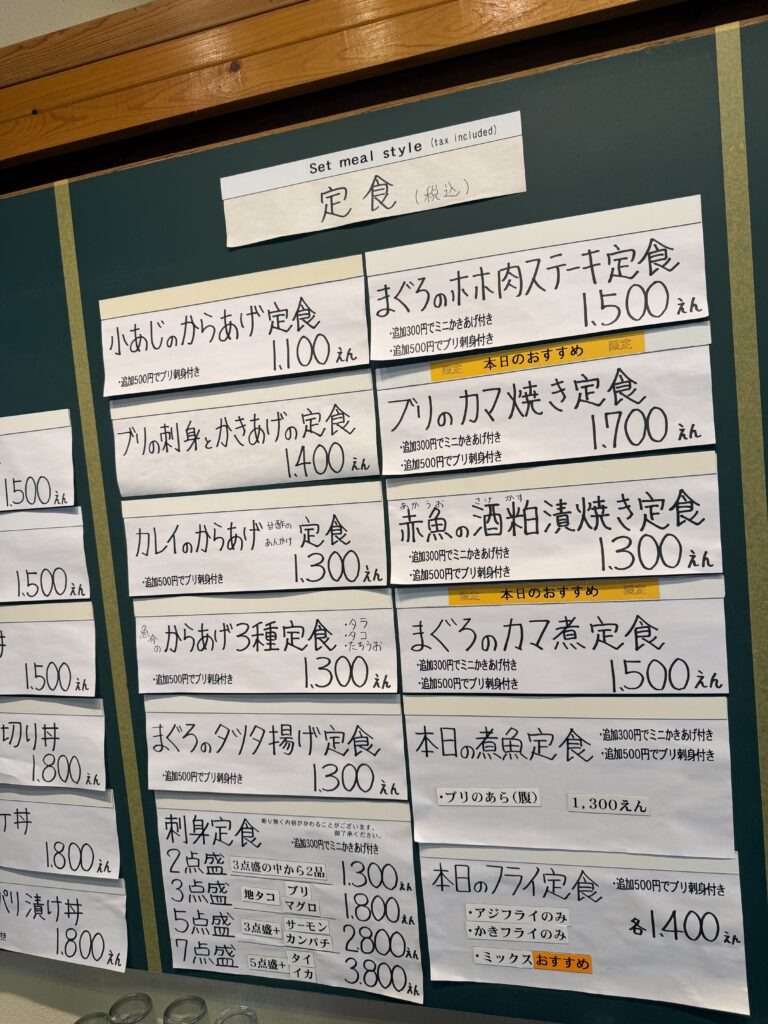 Set meal style (tax included)
定食(税込)
小あじのからあげ定食
1,100えん
・追加500円でブリ刺身付き
ブリの刺身とかきあげの定食
1,400えん
カレイのからあげ 甘酢のあんかけ 定食
・追加500円でブリ刺身付き
1,300えん
魚介の からあげ3種定食
・タラ
・タコ
・たちうお
・追加500円でブリ刺身付き
1,300えん
まぐろのタツタ揚げ定食
・追加500円でブリ刺身付き
1,300えん
刺身定食
乗り無く内容がかわることがございます。
御了承ください。
・追加300円でミニかきあげ付き
2点盛 3点盛の中から2品 1,300えん
3点盛 地タコ ブリ マグロ 1,800えん
5点盛 3点盛+ サーモン カンパチ 2,800えん
7点盛 5点盛+ タイ イカ 3,800えん
まぐろのホホ肉ステーキ定食
・追加300円でミニかきあげ付き
・追加500円でブリ刺身付き
1,500えん
限定 本日のおすすめ 限定
ブリのカマ焼き定食
・追加300円でミニかきあげ付き
・追加500円でブリ刺身付き
1,700えん
あかうお さけ かす
赤魚の酒粕漬焼き定食
・追加300円でミニかきあげ付き
・追加500円でブリ刺身付き
1,300えん
限定 本日のおすすめ 限定
まぐろのカマ煮定食
・追加300円でミニかきあげ付き
・追加500円でブリ刺身付き
1,500えん
本日の煮魚定食
・追加300円でミニかきあげ付き
・追加500円でブリ刺身付き
・ブリのあら(腹) 1,300えん
本日のフライ定食
・追加500円でブリ刺身付き
・アジフライのみ
・かきフライのみ
・ミックス おすすめ
各1,400えん
1,500えん
1,500えん
丼
1,500えん
切り丼
1,800えん
丼
1,800えん
パリ漬け丼
1,800えん